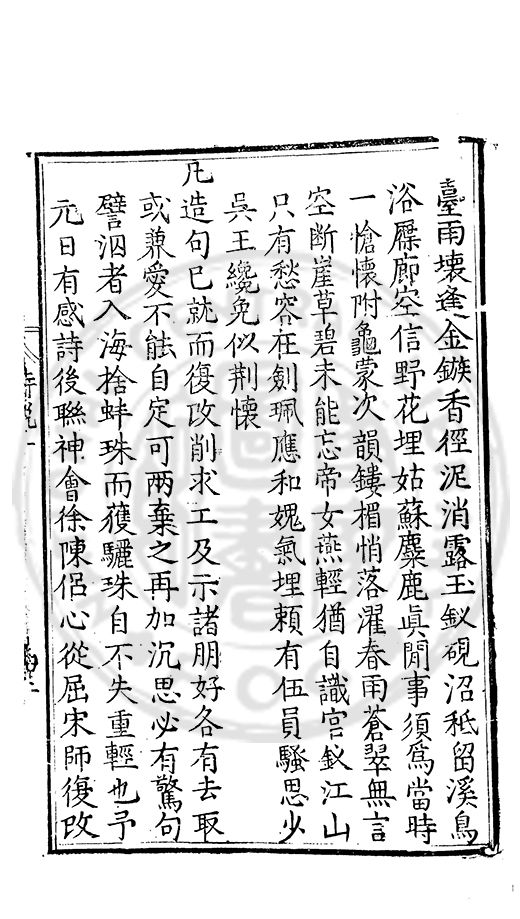 臺雨壞逢金鏃香徑泥消露玉釵硯沼秪留溪鳥
浴屧廊空信野花埋姑蘇麋鹿眞閒事須爲當時
一愴懷附龜蒙次韻鏤楣悄落濯春雨蒼翠無言
空斷崖草碧未能忘帝女燕輕猶自識宫釵江山
只有愁容在劍珮應和媿氣埋頼有伍員騷思少
吳王纔免似荆懷
凡造句已就而復改削求工及示諸朋好各有去取
或兼愛不能自定可兩棄之再加沉思必有驚句
譬泅者入海捨蚌珠而獲驪珠自不失重輕也予
元日有感詩後聯神會徐陳侣心從屈宋師復改